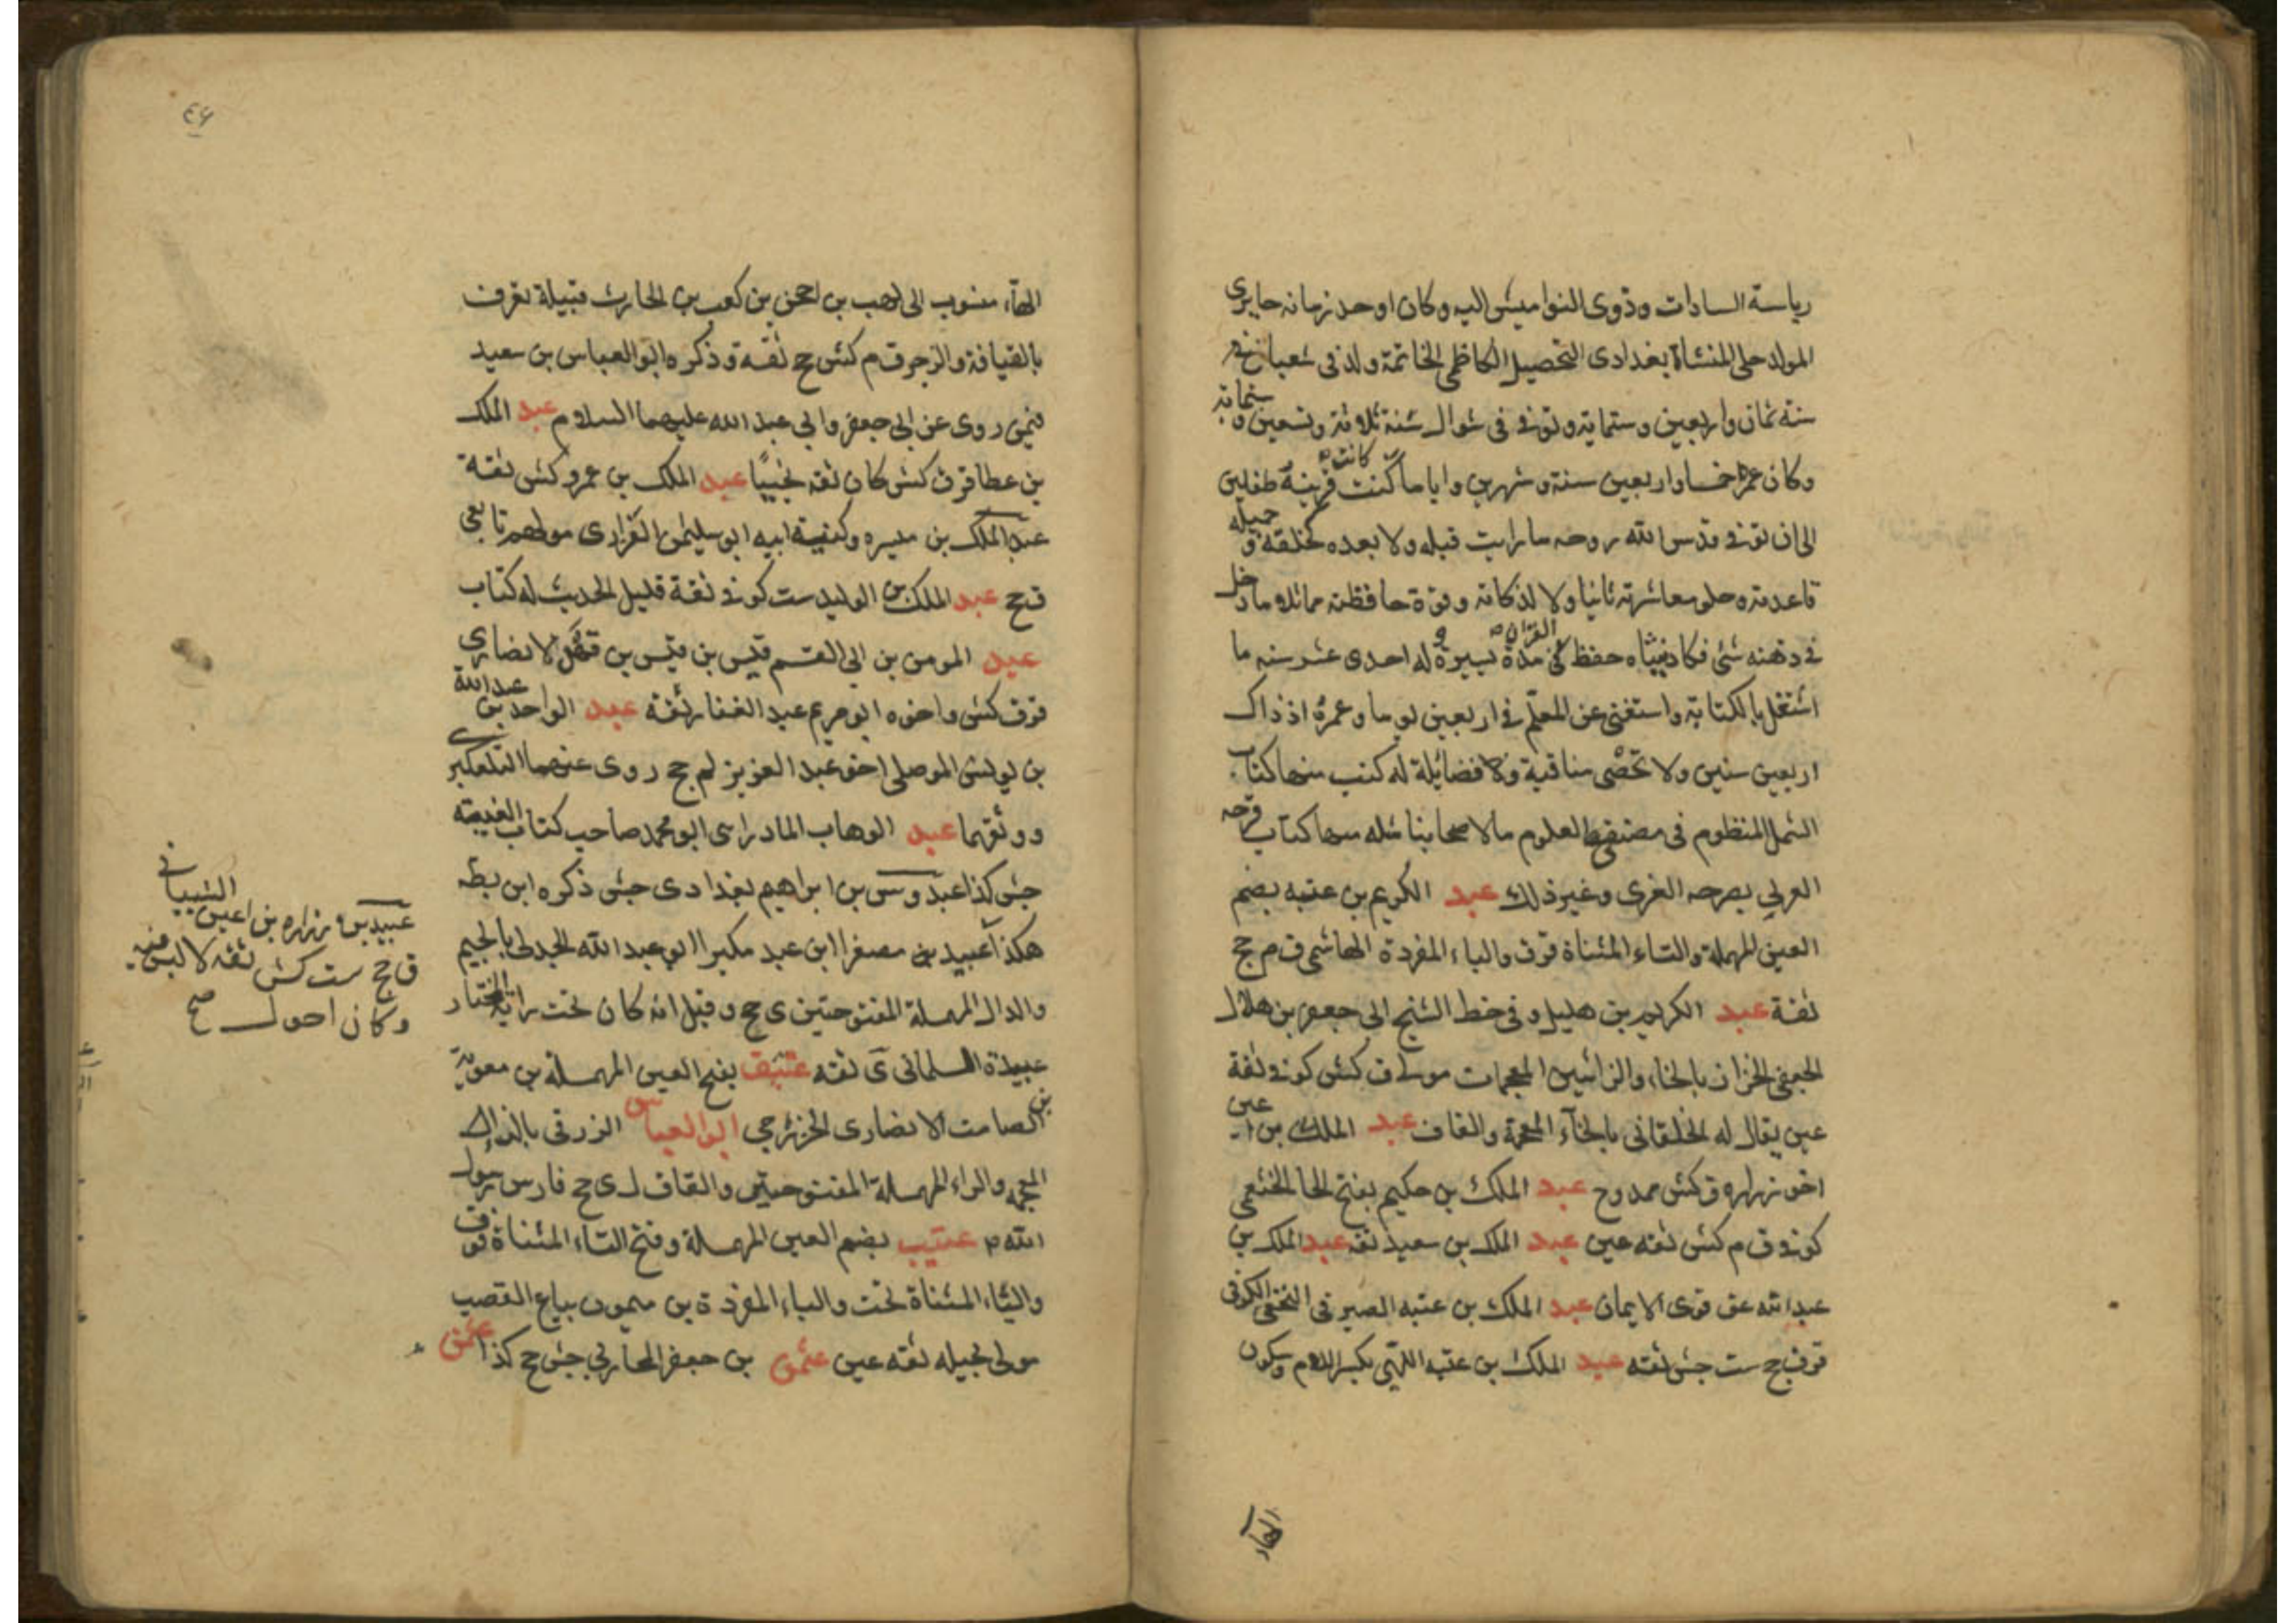 رياسة السادات وذوى النواميس اليه وكان اوحد زمانه حايرى
المولد حلى المنشاة بغدادى التحصيل الكاظمى الخاتمة ولد فى شعبان
سنة ثمان واربعين وستماية وتوفى فى شوال سنة ثلاثة وتسعين وستماية
وكان عمره خمسا واربعين سنة وشهرين واياما كنت كانت قرينه طفلين
الى ان توفى قدس الله روحه ما رايت قبله ولا بعده كخلقه و جميله
قاعدته وحلو معاشرته ثانيا ولا لذكائه وقوة حافظته مماثلا ما دخل
فى ذهنه شئ فكاد ينساه حفظ القران فى مدة يسيرة و له احدى عشر سنه ما
اشتغل بالكتابة واستغنى عن المعلم فى اربعين يوما وعمره اذ ذاك
اربعين سنين ولا تحصى مناقبة وفضايلة له كتب منها كتاب
الشمل المنظوم فى مصنفى العلوم ما لاصحابنا مثله منها كتاب فرحه
الغرلى بصرحه الغرى وغير ذلك عبد الكريم بن عتبه بضم
العين المهملة والتاء المثناة فوق والباء المفردة الهاشمى ق م جج
ثقة عبد الكريم بن هليل و فى خط الشيخ ابى جعفر بن هلال
الجعفى الخزاز بالخاء والزائين المعجمات مولى ق كش كوفى ثقة
عين يقال له الخلقانى بالخاء المعجمة والقاف عبد الملك بن اعين
اخو زراره ق كش ممدوح عبد الملك بن حكيم بفتح الحا الخثعمى
كوفى ق م كش ثقه عين عبد الملك بن سعيد ثقه عبد الملك بن
عبد الله عق قوى الايمان عبد الملك بن عتبه الصيرفى النخعى الكوفى
قوق جج ست جش ثقه عبد الملك بن عتبه اللهبى بكسر اللام وسكون
الهاء
٤٦
الهاء منسوب الى لهب بن احجن بن كعب بن الحارث قبيلة تعرف
بالقيافة والزجر ق م كش جج ثقة وذكره ابو العباس بن سعيد
فيمن روى عن ابى جعفر وابى عبد الله عليهما السلام عبد الملك
بن عطا قرق كش كان ثقه نجيبًا عبد الملك بن عمرو كش ثقة
عبد الملك بن ميسره وكنية ابيه ابو سليمن الفزارى مولاهم تابعى
ق جج عبد الملك بن الوليد ست كوفى ثقة قليل الحديث له كتاب
عبد المومن بن ابى القسم قيس بن قيس بن قهد الانصارى
قرق كش واخوه ابو مريم عبد الغفار ثقه عبد الواحد بن عبد الله
بن يونس الموصلى اخو عبد العزيز لم جج روى عنهما التلعكبرى
ووثقهما عبد الوهاب المادراى ابو محمد صاحب كتاب الغيبه
جش كذا عبدوس بن ابراهيم بغدادى جش ذكره ابن بطه
هكذا عبيد بن مصغرا ابن عبد مكبرا ابو عبد الله الجدلى بالجيم
والدال المهملة المفتوحتين ى جج وقيل انه كان تحت راية المختار
عبيدة السلمانى ى ثقه عتيق بفتح العين المهملة بن معوية
بن الصامت الانصارى الخزرجى ابو العياس الزرقى بالزاى
المعجمه والراء المهملة المفتوحتين والقاف ل ى جج فارس رسول
الله ص عتيب بضم العين المهملة وفتح التاء المثناة فوق
والياء المثناة تحت والباء المفردة بن ميمون بياع القصب
مولى بجيله ثقه عين عثمن بن جعفر المحاربى جش جج كذا عثمن
عبيد بن زراره بن اعين الشيبانى
ق جج ست كش ثقه لا لبس فيه
وكان احول صح